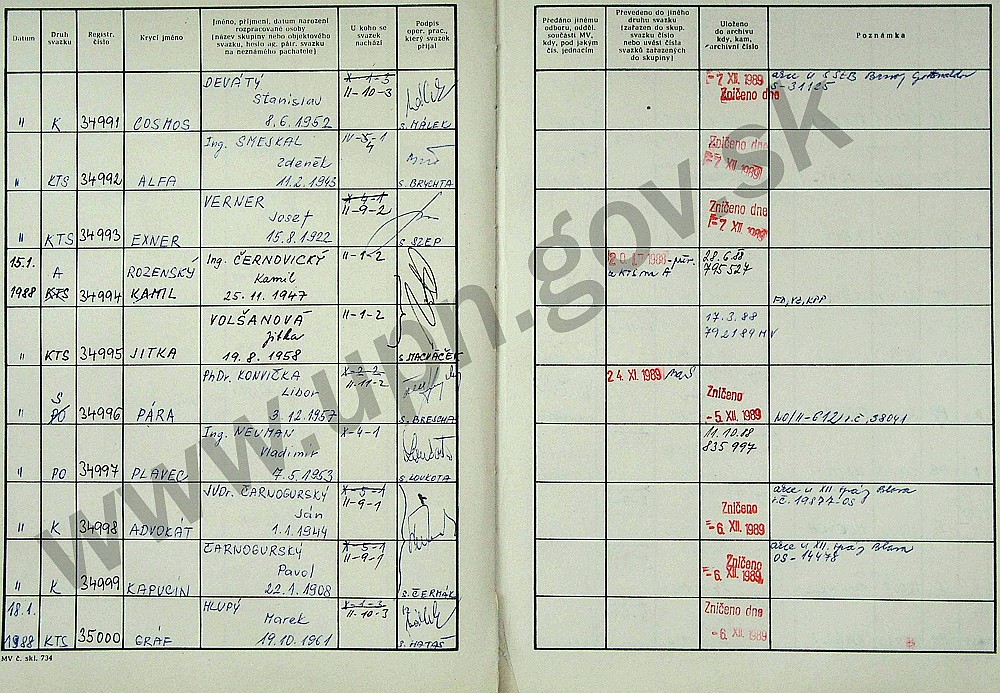 Datum
Druh svazku
Registr. číslo
Krycí jméno
Jméno, příjmení, datum narození
rozpracované osoby
(název skupiny nebo objektového
svazku, heslo ag. pátr. svazku
na neznámého pachatele)
U koho se
svazek
nachází
Podpis
oper. prac.,
který svazek
přijal
Předáno jinému
odboru, odděl.
součásti MV,
kdy, pod jakým
čís. jednacím
Převedeno do jiného
druhu svazku
(zařazen do skup.
svazku číslo
nebo uvést čísla
svazků zařazených
do skupiny)
Uloženo
do archivu
kdy, kam,
archivní číslo
Poznámka
DEVÁTÝ X-1-3
Stanislav II-10-3
" K 34991 COSMOS 8.6.1952 s. MÁLEK
-7. XII. 1989
Zničeno dne
S-31125
Ing. SMEJKAL IV-5-1
Zdeněk 4
" KTS 34992 ALFA 11.2.1943 s. BRYCHTA
Zničeno dne
-7. XII. 1989
VERNER X-4-1
Josef II-9-2
" KTS 34993 EXNER 15.8.1922 s. SZEP
Zničeno dne
-7. XII. 1989
15.1. A ROZENSKÝ Ing. ČERNOVICKÝ II-1-2
Kamil
1988 KTS 34994 KAMIL 25.11.1947
KTS na A
28.6.88
795 527
VOLŠANOVÁ II-1-2
Jitka
" KTS 34995 JITKA 19.8.1958 s. MACHÁČEK
17.3.88
792189 MV
S PhDr. KONVIČKA X-2-2
Libor II-11-2
" PO 34996 PÁRA 3.12.1957 s. BRESCHA
24. XI. 1989
Zničeno
-5. XII. 1989
Ing. NEUMAN X-4-1
Vladimír
" PO 34997 PLAVEC 7.5.1953 s. LOUKOTA
11.10.88
835 997
JUDr. ČARNOGURSKÝ X-5-1
Ján II-9-1
" K 34998 ADVOKAT 1.1.1944
Zničeno
-6. XII. 1989
ČARNOGURSKÝ X-5-1
Pavol II-9-1
" K 34999 KAPUCÍN 22.1.1908 s. ČERMÁK
Zničeno
-6. XII. 1989
OS-14478
18.1. HLUPÝ X-1-3
Marek II-10-3
1988 KTS 35000 GRÁF 19.10.1961 s. MATAŠ
Zničeno dne
-6. XII. 1989
MV č. skl. 734
www.upn.gov.sk